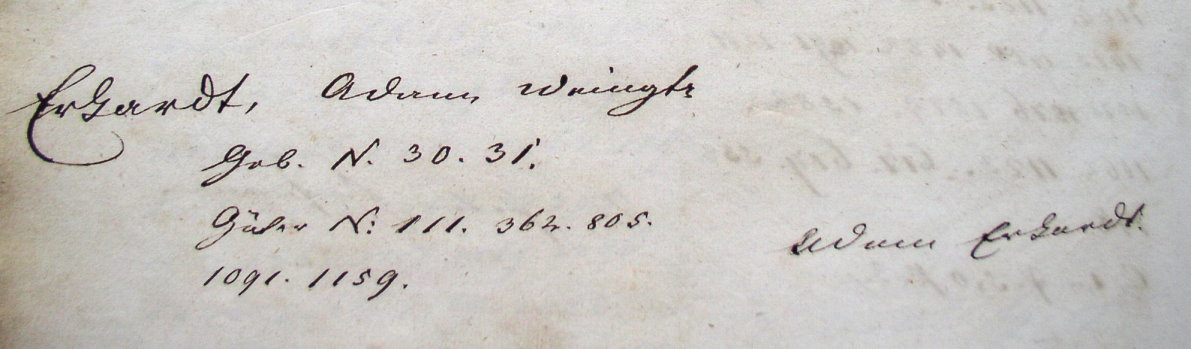 Erhardt, Adam, Weingtr
Geb. N. 30. 31.
Güter N: 111. 362. 805.
1091. 1159.
Adam Erhardt.